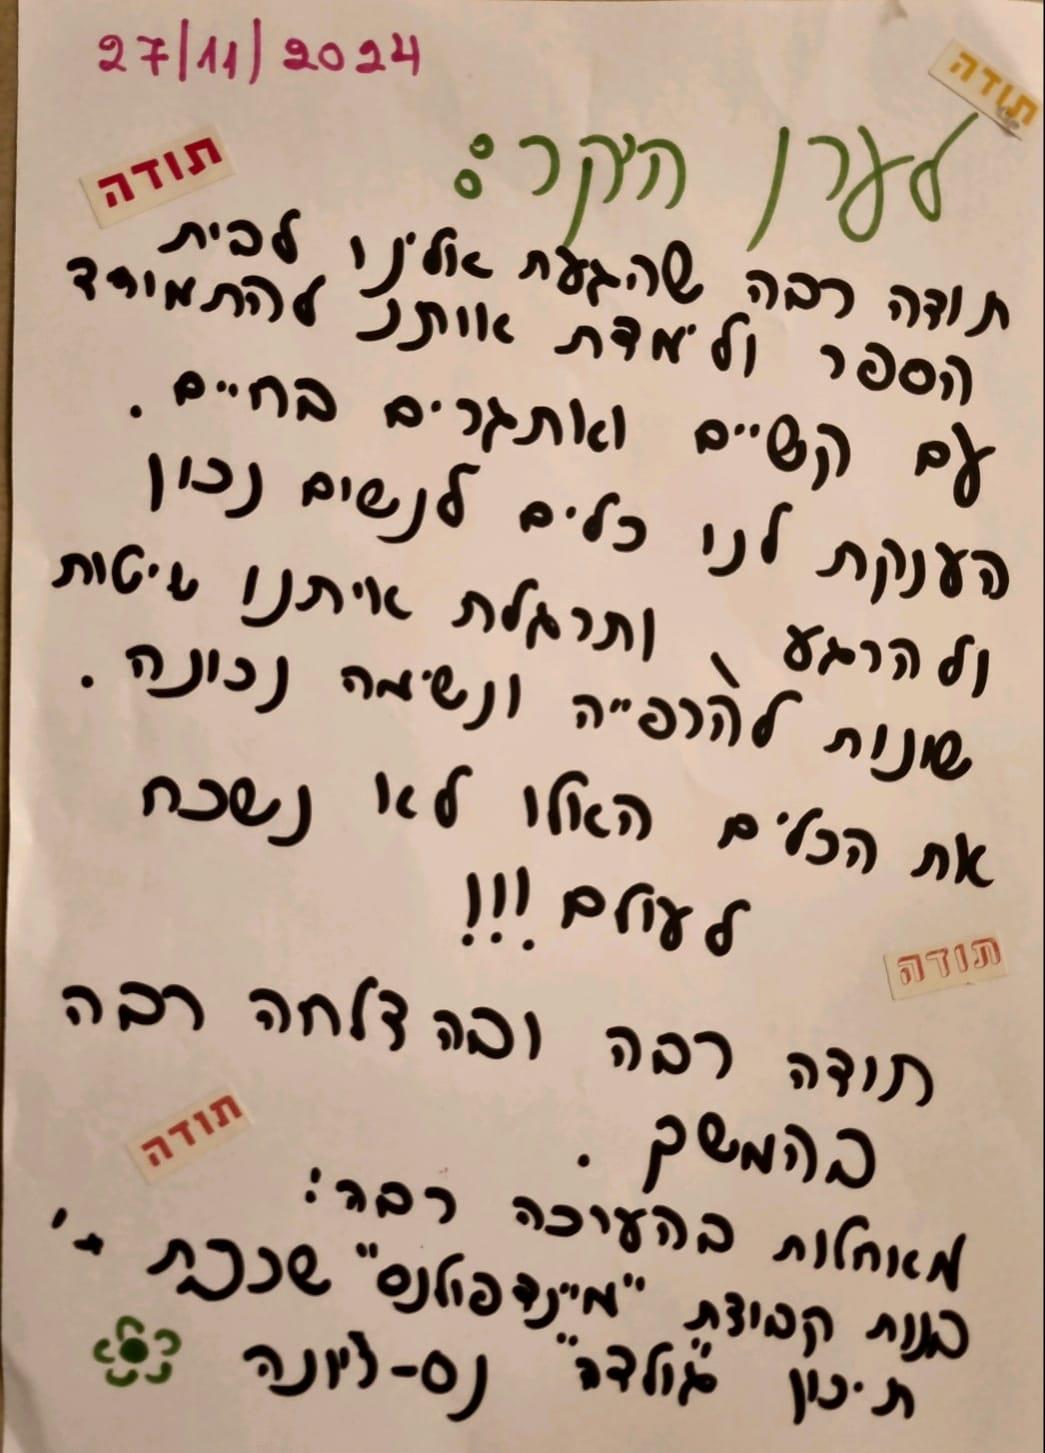 27/11/2024
תודה
תודה
לערן היקר:
תודה רבה שהגעת אלינו לבית
הספר ולימדת אותנו להתמודד
עם קשיים ואתגרים בחיים.
הענקת לנו כלים לנשים נכון
ולהרגע, ותרגלת איתנו שיטות
שונות להרפייה ונשימה נכונה.
את הכלים האלו לא נשכח
לעולם!!!
תודה
תודה רבה ובהצלחה רבה
בהמשך.
תודה
מאוחלות בהערכה רבה:
בנות קבוצת "מיינדפולנס" שכבת
תיכון "גולדה" נס-ציונה